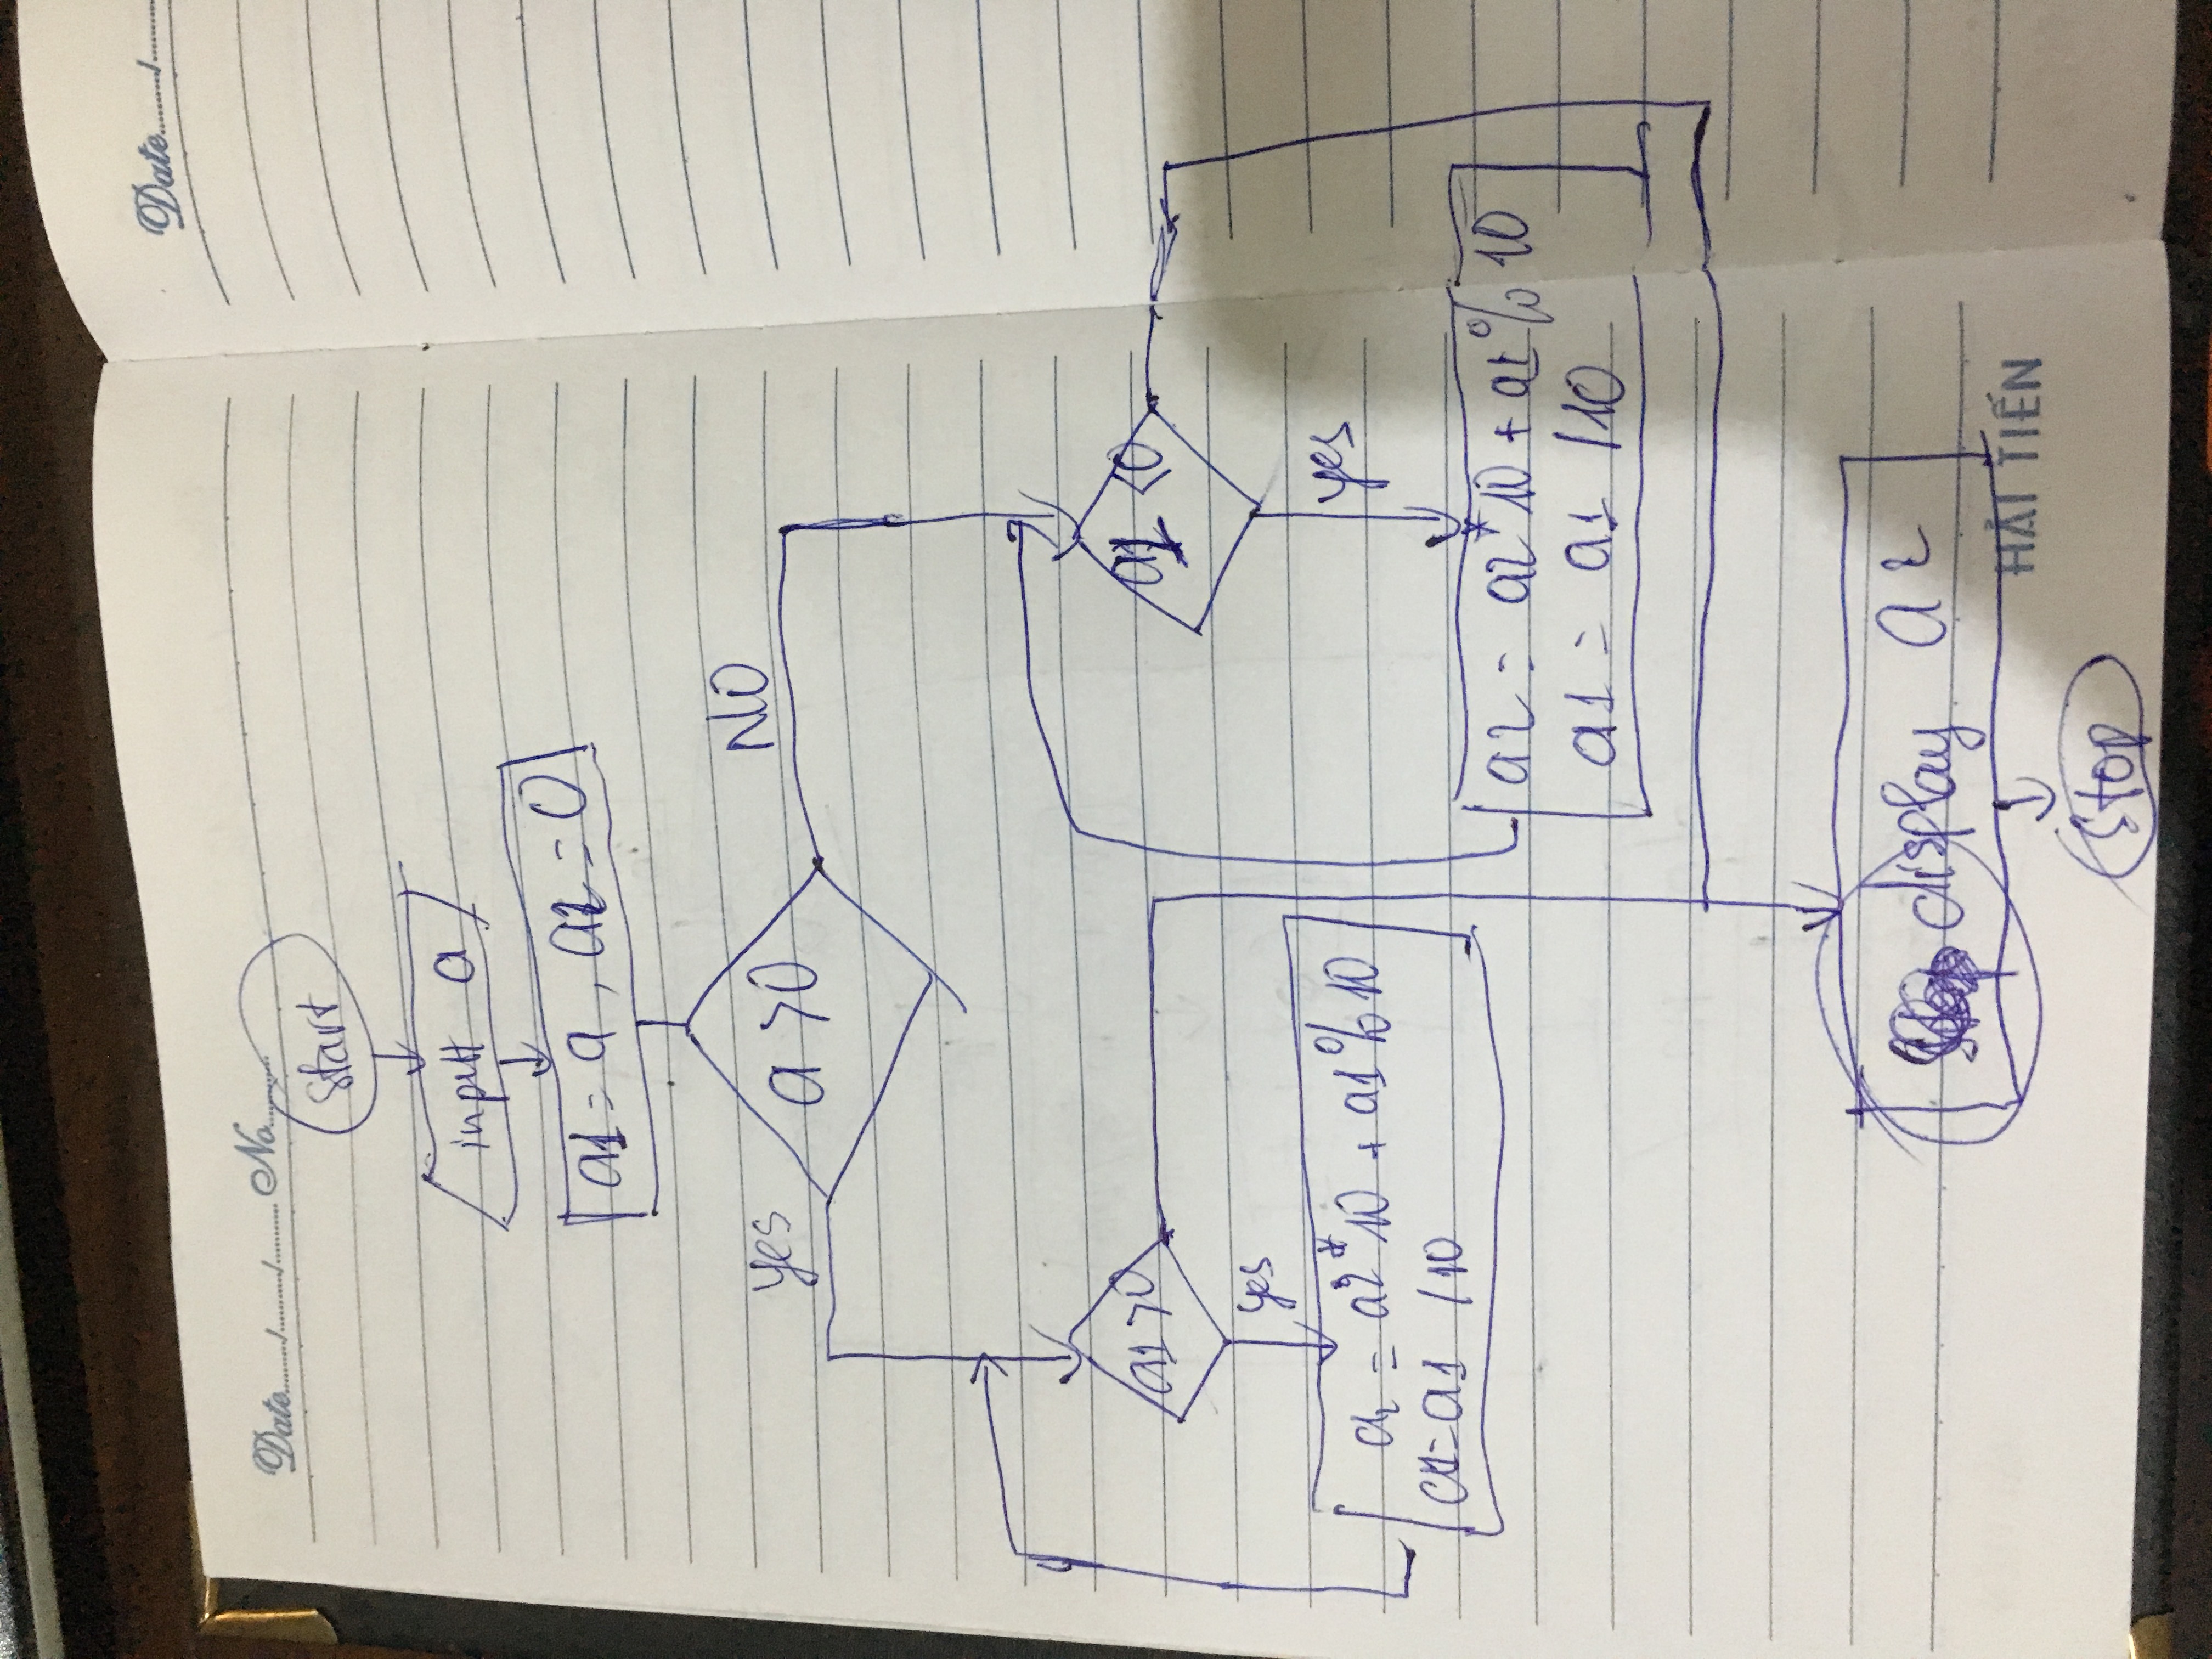 Date......./......./........ No..........
Date........./........
Start
input a
a1 = a , a2 = 0
a > 0
yes
NO
a1 > 0
a1 < 0
yes
yes
a2 = a2 * 10 + a1 % 10
a1 = a1 / 10
a2 = a2 * 10 + a1 % 10
a1 = a1 / 10
display a2
HẢI TIẾN
Stop